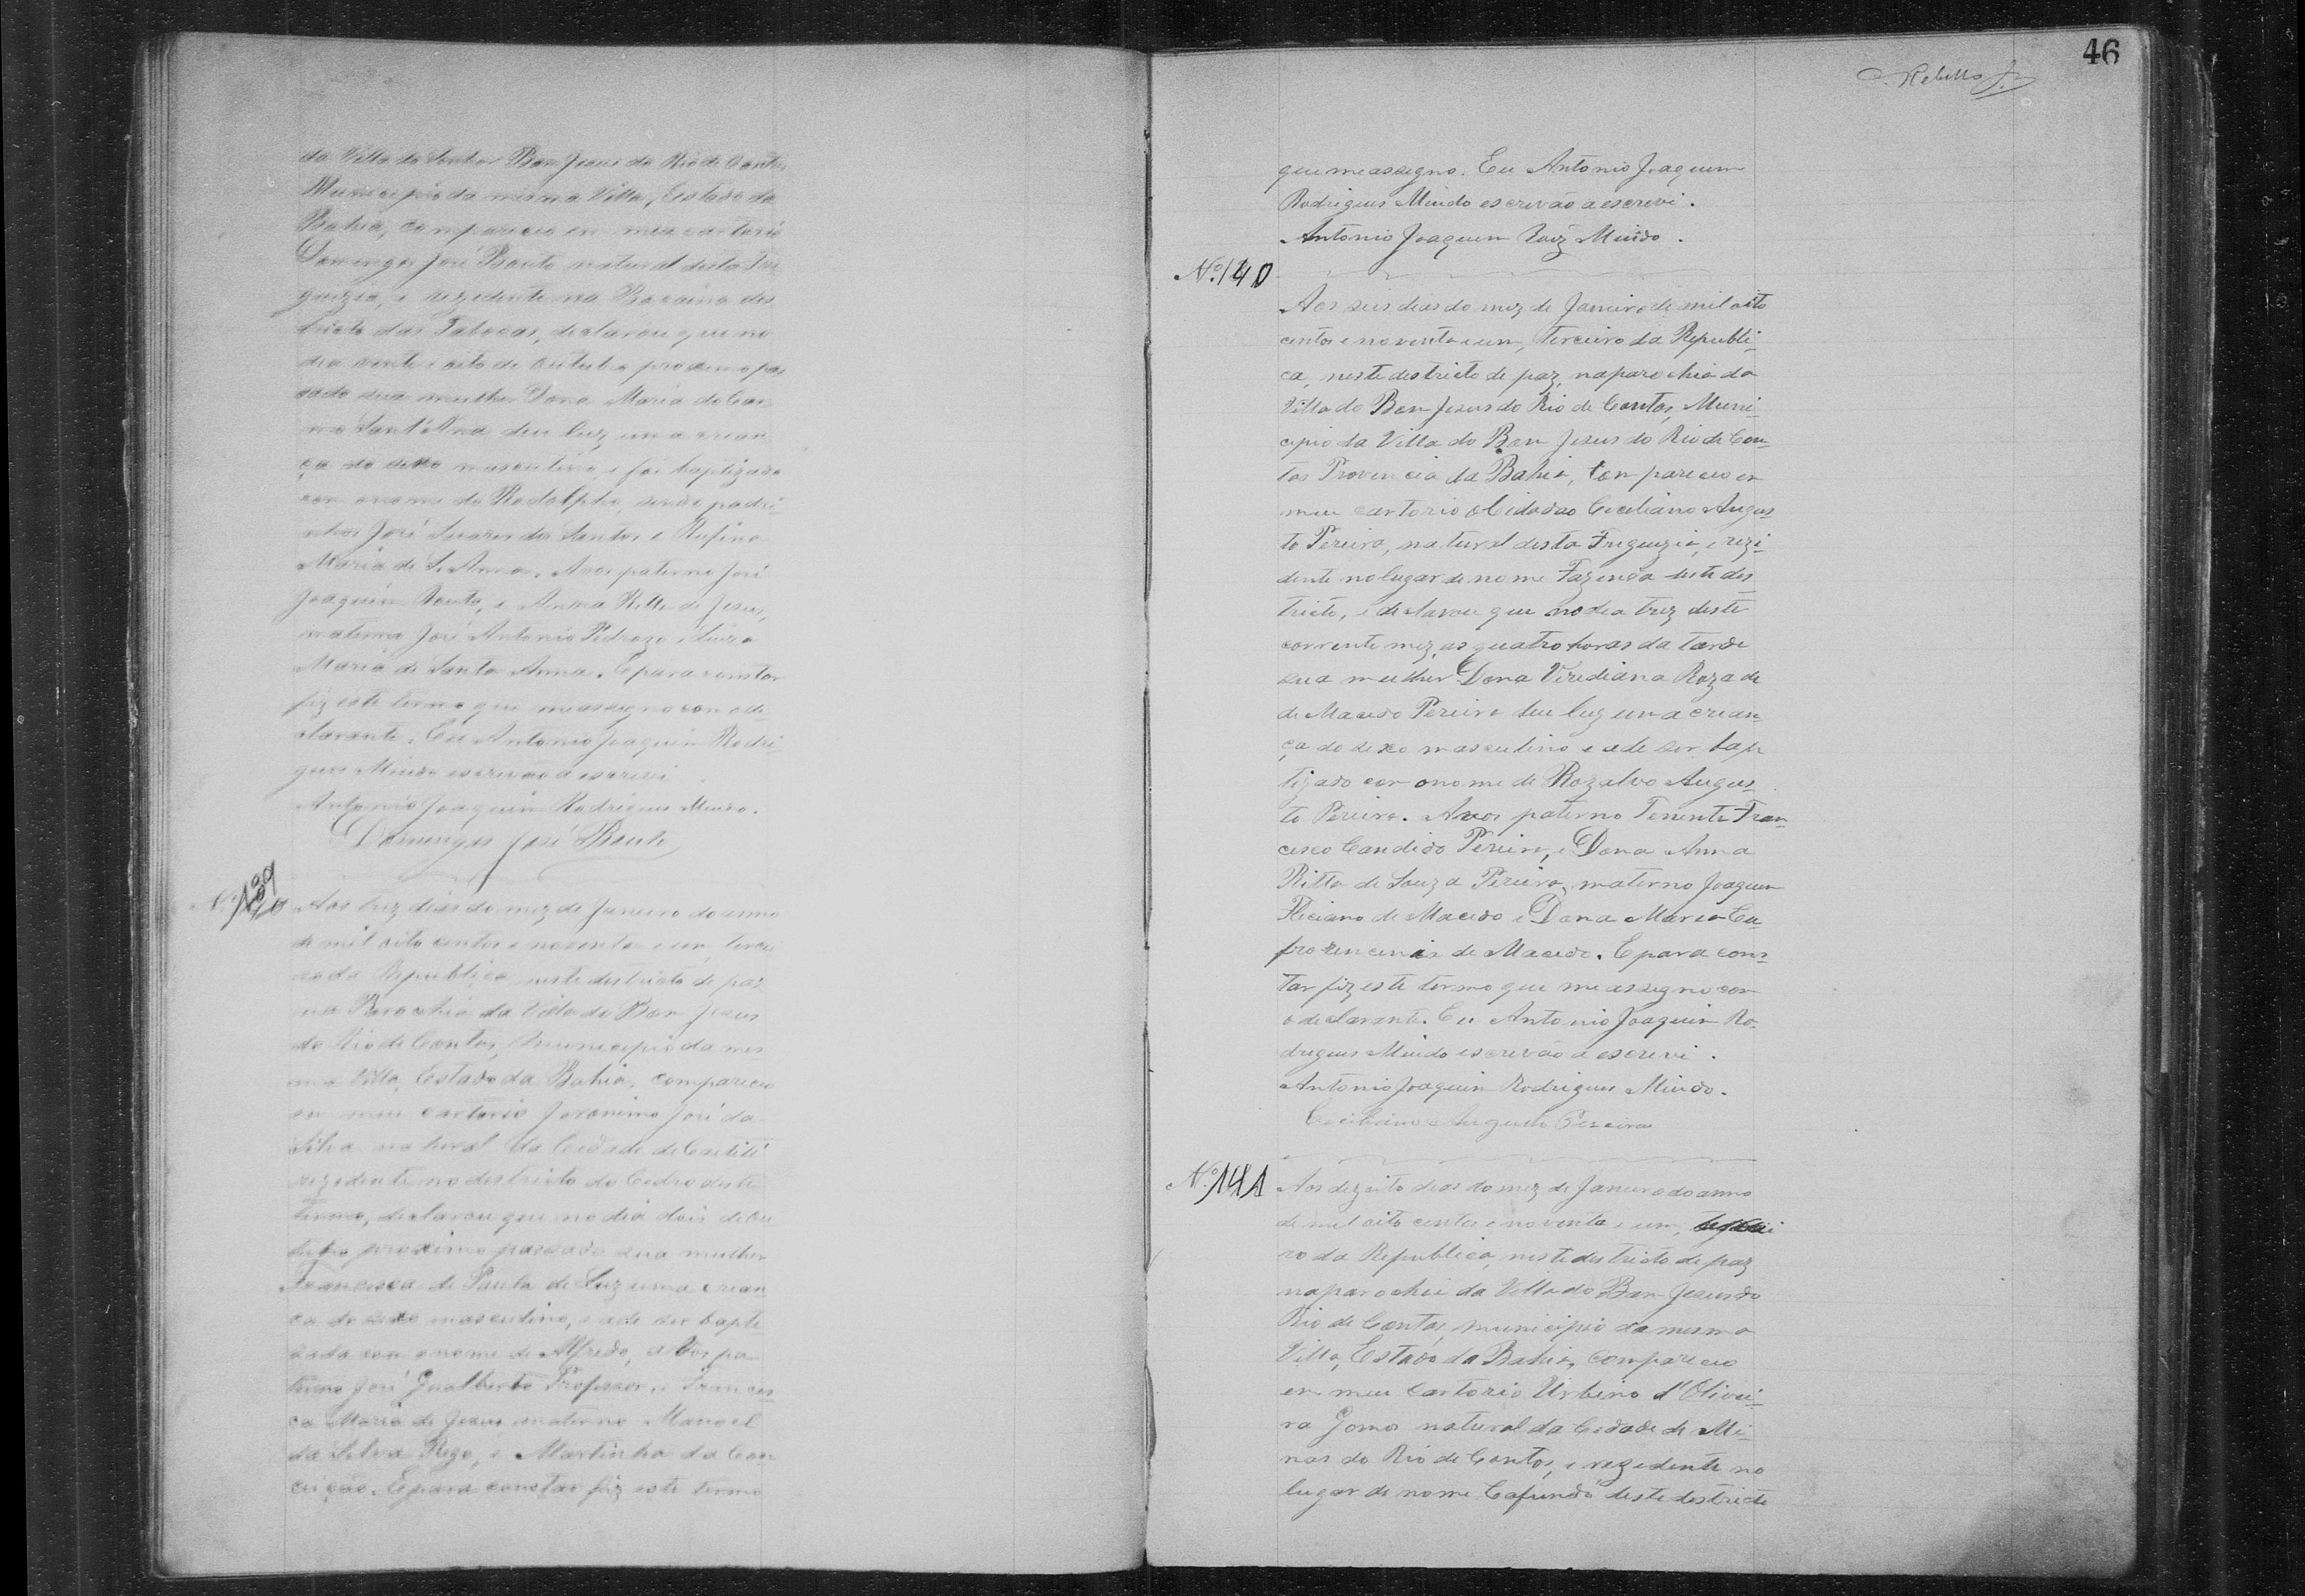 da Villa do Senhor Bom Jesus do Rio de Contas,
Municipio da mesma Villa, Estado da
Bahia, compareceu em meu cartorio
Domingos José Bouto natural desta Fre
guezia, e rezidente na dis
tricto das Tabocas, declarou que no
dia vinte e oito de Outubro proximo pas
sado sua mulher Dona Maria do Car
mo Sant'Ana deu luz uma crian
ça do sexo masculino e foi baptizado
com o nome de Rodolpho, sendo padri
nhos José Soares dos Santos e Rufina
Maria de S. Anna. Avos paterno José
Joaquim Bouto, e Anna Ritta de Jesus,
materno José Antonio Pedrozo e Luiza
Maria de Santa Anna. E para constar
fiz este termo que me assegno com o de
clarante. Eu Antonio Joaquim Rodri
gues Miudo escrevão a escrevi
Antonio Joaquim Rodrigues Miudo.
Domingos José Bouto
Nº 139
Aos trez dias do mez de Janeiro do anno
de mil oito centos e noventa e um, tercei
ro da Republica neste districto de paz
na Parochia da Villa do Bom Jesus
do Rio de Contas, municipio da mes
ma Villa, Estado da Bahia, compareceo
em meu cartorio Jeronimo José da
Silva natural da Cidade de Caetité
rezidente no destricto do Cedro deste
termo, declarou que no dia dois de Ou
tubro proximo passado sua mulher
Francisca de Paula de Luz uma crian
ca do sexo masculino, e ade ser bapti
zada com o nome de Alfredo, avos pa
terno José Gualberto Professor, e Francis
ca Maria de Jesus materno Manoel
da Silva Rego, e Martinha da Con
ceição. E para constar fiz este termo
46
Rebello Jr
que me assegno. Eu Antonio Joaquim
Rodrigues Miudo escrevão a escrevi.
Antonio Joaquim Roiz Miudo.
Nº 140
Aos seis dias do mez de Janeiro de mil oito
centos e noventa e um, terceiro da Republi-
ca, neste destricto de paz, na parochia da
Villa do Bom Jesus do Rio de Contas, Muni-
cipio da Villa do Bom Jesus do Rio de Con-
tas Provencia da Bahia, compareceo em
meu cartorio o Cidadão Ceciliano Augus-
to Pereira, natural desta Freguezia, e rezi-
dente no lugar de nome Fazenda deste des-
tricto, e declarou que no dia trez deste
corrente mez, as quatro horas da tarde
sua mulher Dona Verediana Roza de
de Macedo Pereira deu luz uma crean-
ça do sexo masculino e ade ser bap
tizado com o nome de Rozalvo Augus-
to Pereira. Avos paterno Tenente Fran-
cisco Candido Pereira, e Dona Anna
Ritta de Souza Pereira, materno Joaquim
Fliciano de Macedo e Dona Maria Eu-
frozencenia de Macedo. E para cons-
tar fiz este termo que me assegno com
o declarante. Eu Antonio Joaquim Ro-
drigues Miudo escrevão a escrevi.
Antonio Joaquim Rodrigues Miudo.
Ceciliano Augusto Pereira
Nº 141
Aos dezoito dias do mez de Janeiro do anno
de mil oito centos e noventa e um, tercei
ro da Republica, neste destricto de paz
na parochia da Villa do Bom Jesus do
Rio de Contas, municipio da mesma
Villa, Estado da Bahia, compareceo
em meu Cartorio Urbino d'Olivei-
ra Gomes natural da Cedade de Mi-
nas do Rio de Contas, e rezedente no
lugar de nome Cafundó deste destricto